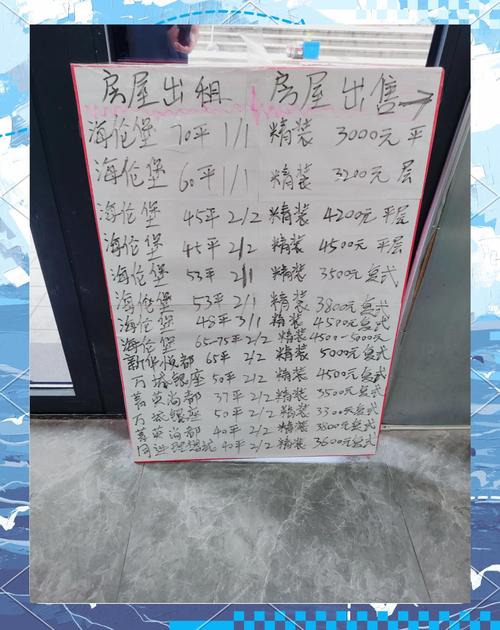 房屋出租 房屋出售→
海伦堡 70平 1/1 精装 3000元 平
海伦堡 60平 1/1 精装 3200元 层
海伦堡 45平 2/2 精装 4200元 平层
海伦堡 45平 2/2 精装 4500元 平层
海伦堡 53平 2/1 精装 3500元 复式
海伦堡 53平 2/1 精装 3800元 复式
海伦堡 48平 3/1 精装 4500元 复式
海伦堡 65-75平 2/2 精装 4500-5000元
新华悦都 65平 2/2 精装 5000元 复式
万 银座 50平 2/2 精装 4500元 复式
菁英尚都 37平 2/2 精装 3500元 复式
万 银座 50平 2/2 精装 3300元 复式
菁英尚都 40平 2/2 精装 3800元 复式
同进理想 40平 2/2 精装 3600元 复式